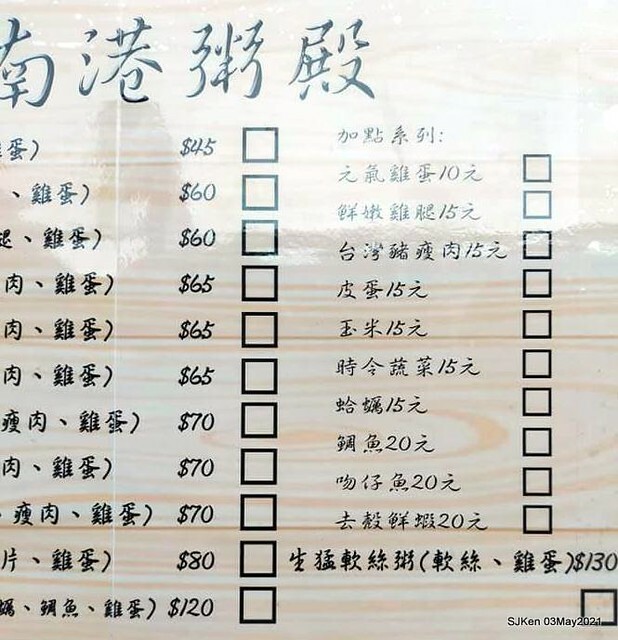 南港粥殿
蛋) $45
、雞蛋) $60
腿、雞蛋) $60
肉、雞蛋) $65
肉、雞蛋) $65
肉、雞蛋) $65
瘦肉、雞蛋) $70
肉、雞蛋) $70
、瘦肉、雞蛋) $70
片、雞蛋) $80
蠣、鯛魚、雞蛋) $120
加點系列:
元氣雞蛋10元
鮮嫩雞腿15元
台灣豬瘦肉15元
皮蛋15元
玉米15元
時令蔬菜15元
蛤蠣15元
鯛魚20元
吻仔魚20元
去殼鮮蝦20元
生猛軟絲粥(軟絲、雞蛋)$130
SJKen 03May2021